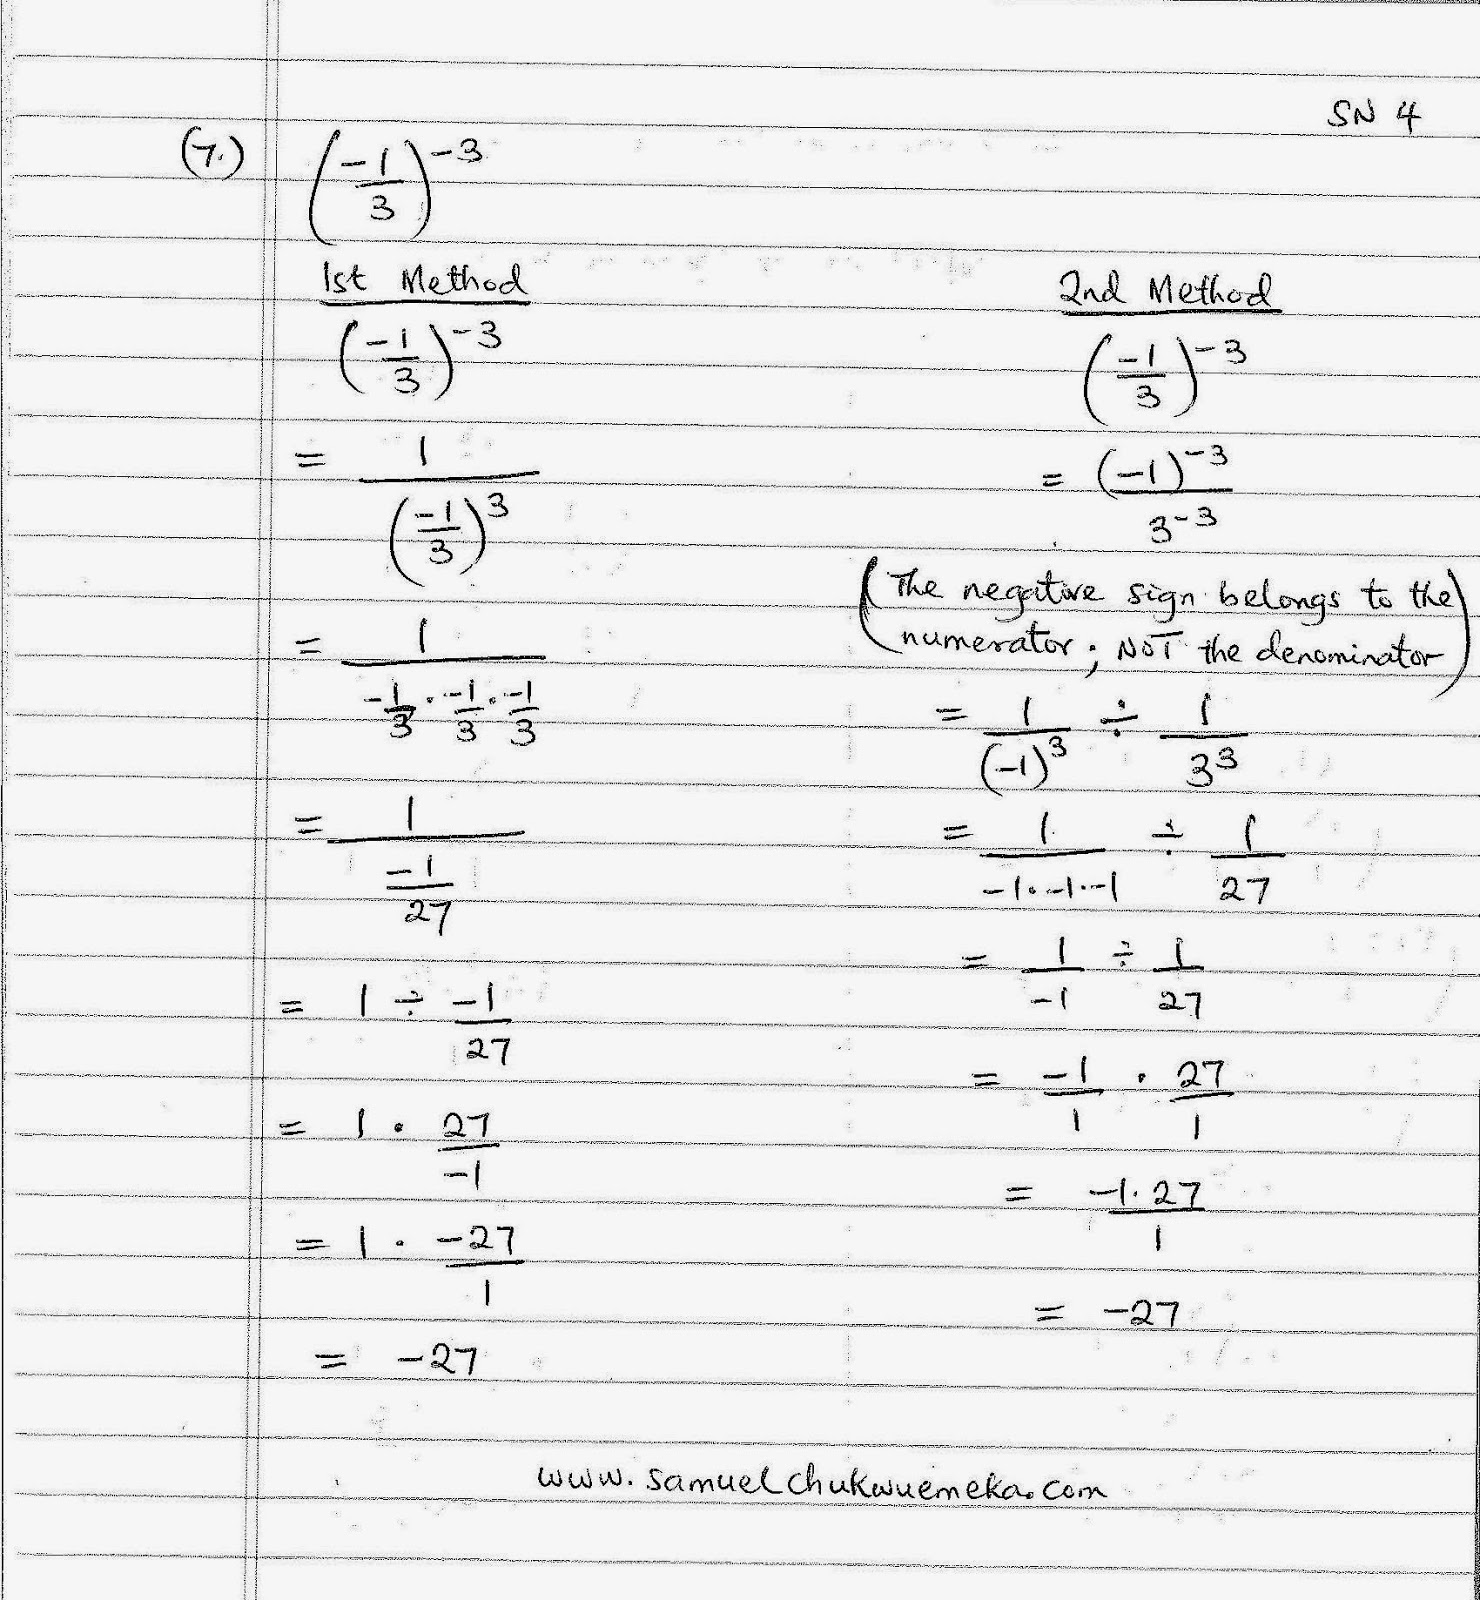 SN 4
(7.) (-1/3)^-3
1st Method
(-1/3)^-3
= 1/(-1/3)^3
= 1/(-1/3 · -1/3 · -1/3)
= 1/(-1/27)
= 1 ÷ -1/27
= 1 · 27/-1
= 1 · -27/1
= -27
2nd Method
(-1/3)^-3
= (-1)^-3/3^-3
(The negative sign belongs to the
numerator; NOT the denominator)
= 1/(-1)^3 ÷ 1/3^3
= 1/(-1·-1·-1) ÷ 1/27
= 1/-1 ÷ 1/27
= -1/1 · 27/1
= -1·27/1
= -27
www.samuelchukwuemeka.com